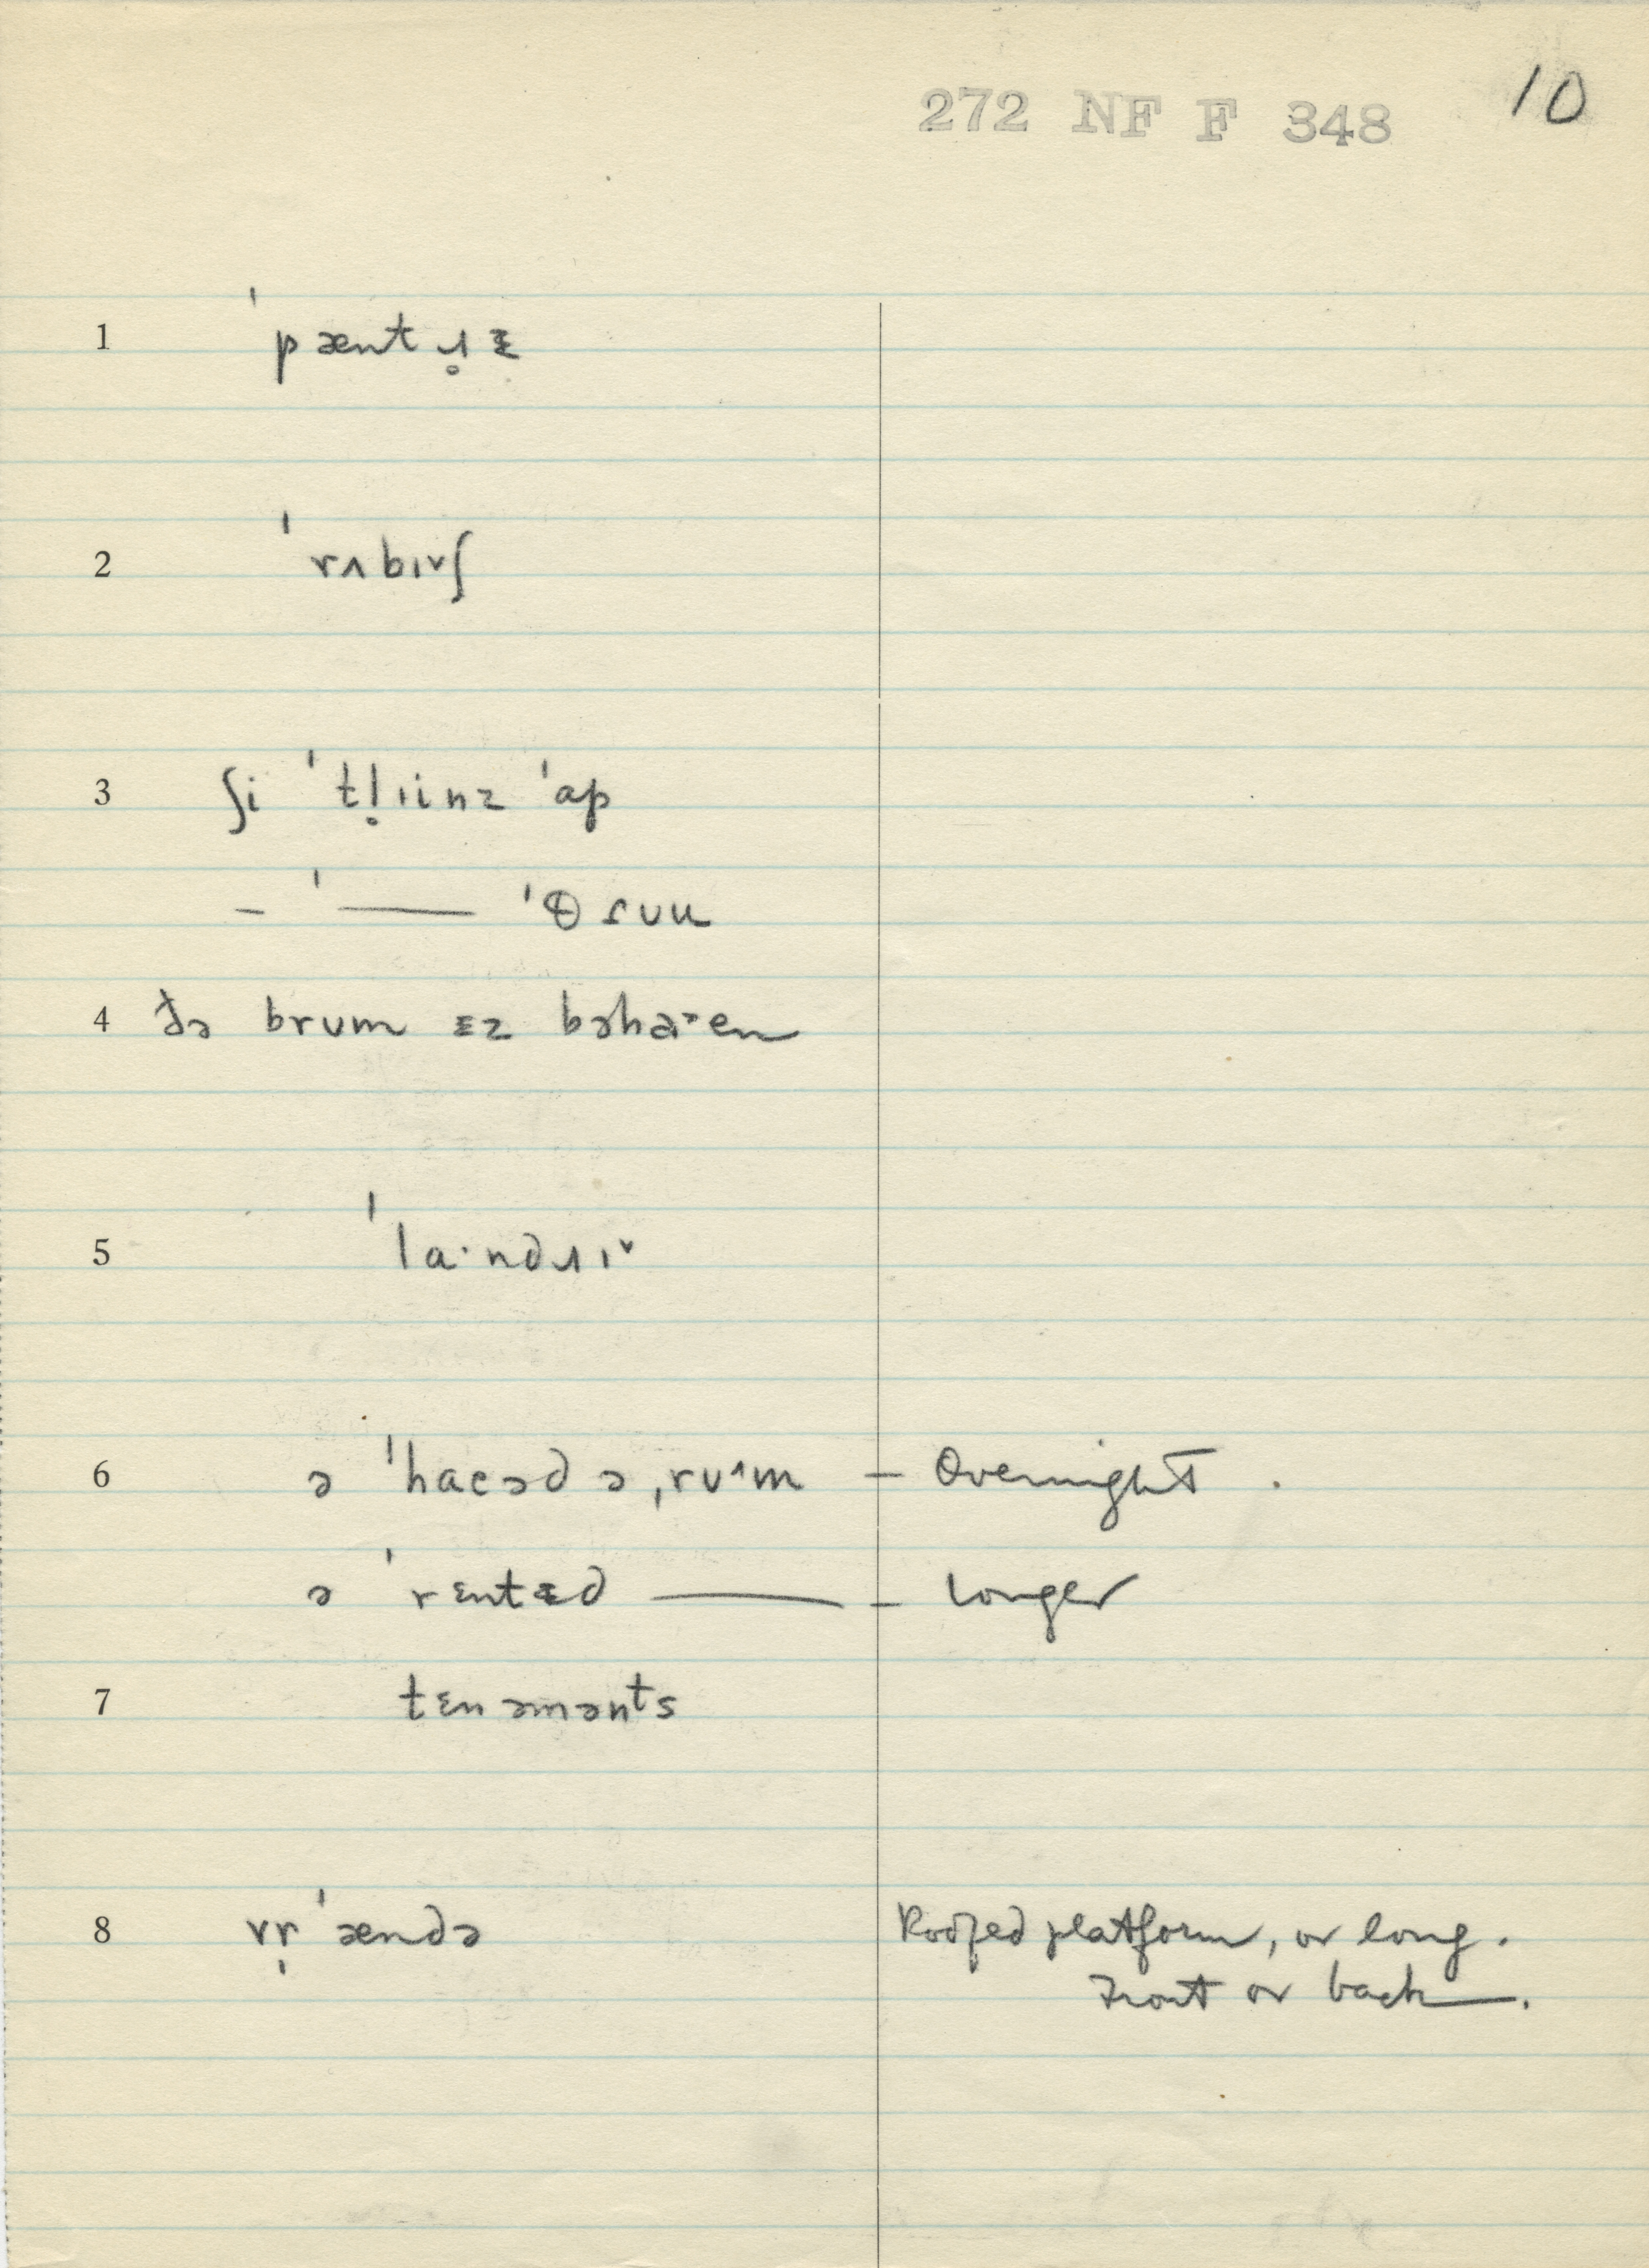 272 NF F 348 10
1 ˈpæntɹ̥ᵻ
2 ˈrʌbɪ˅ʃ
3 ʃi ˈtl̥ɪinz ˈap
– ˈ—— ˈθɾʊu
4 ðə brʊm ᵻz bəhaˑen
5 ˈlaˑndɹɪ˅
6 ə ˈhaeəd ə ˌrʊ˄m – Overnight.
ə ˈrɛntᵻd —— – longer
7 tɛnəmənts
8 vr̩ˈændə Roofed platform, or long.
Front or back.